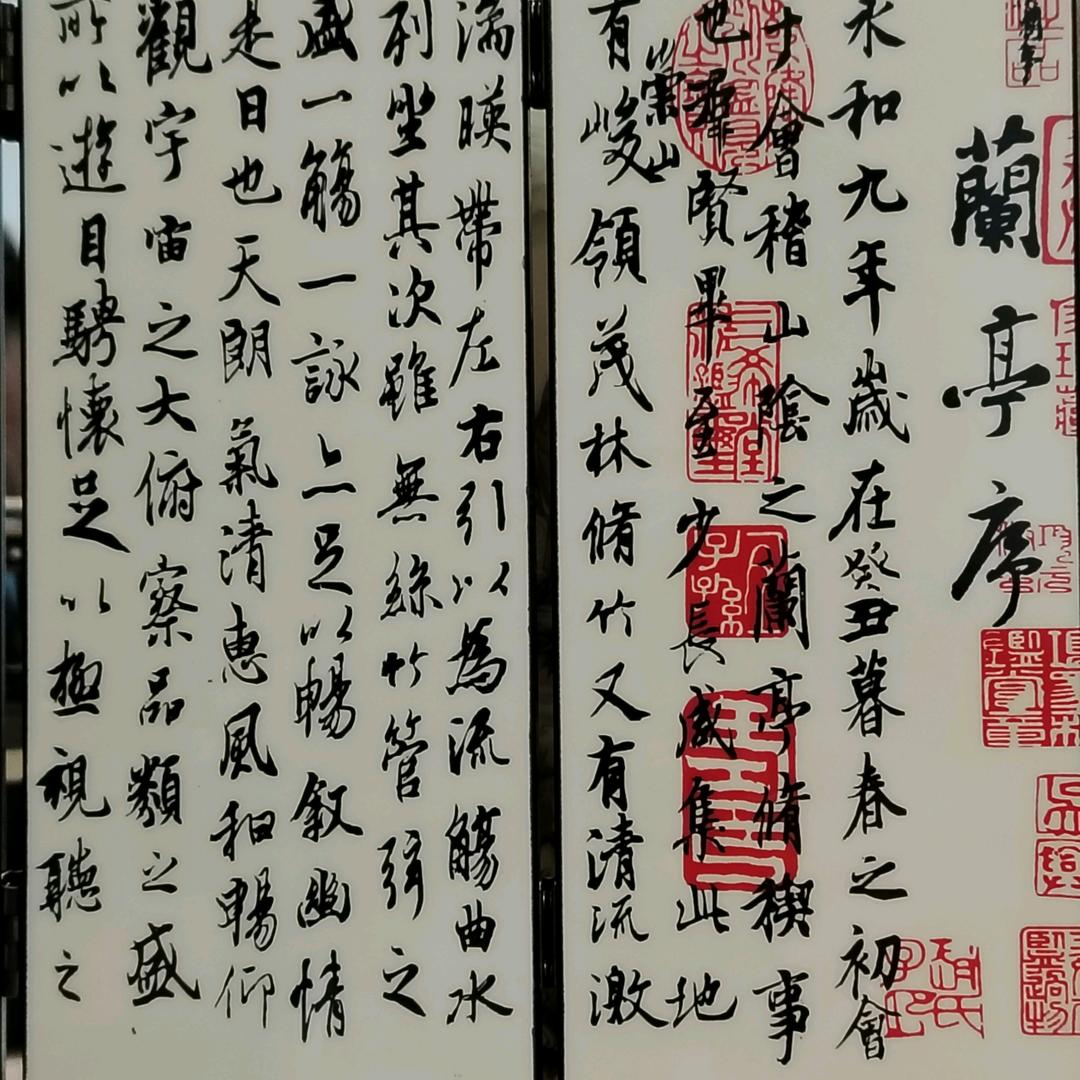 蘭亭序
永和九年歲在癸丑暮春之初會
于會稽山陰之蘭亭脩稧事
也羣賢畢至少長咸集此地
有崇山峻領茂林脩竹又有清流激
湍暎帶左右引以為流觴曲水
列坐其次雖無絲竹管弦之
盛一觴一詠亦足以暢敘幽情
是日也天朗氣清惠風和暢仰
觀宇宙之大俯察品類之盛
所以遊目騁懷足以極視聽之